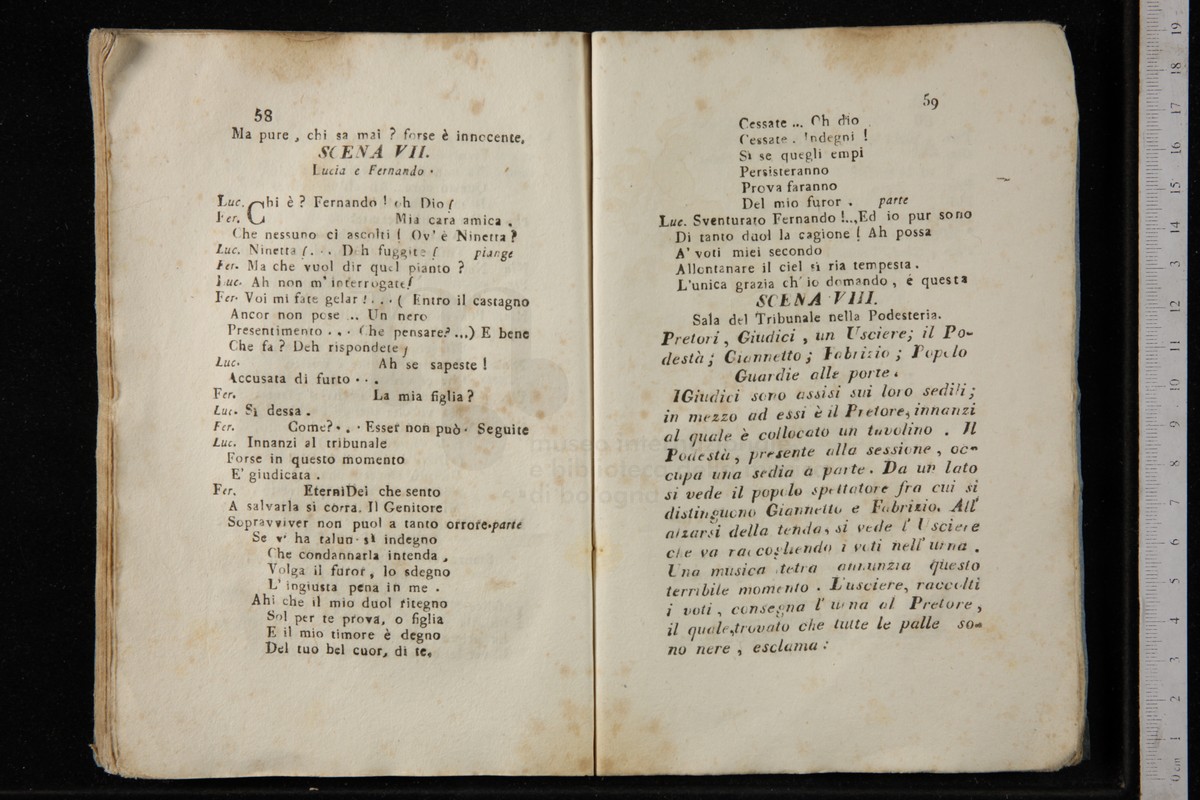 58
Ma pure, chi sa mai ? forse è innocente,
SCENA VII.
Lucia e Fernando.
Luc. Chi è ? Fernando ! oh Dio !
Fer. Mia cara amica.
Che nessuno ci ascolti ! Ov' è Ninetta ?
Luc. Ninetta !... Deh fuggite ! piange
Fer. Ma che vuol dir quel pianto ?
Luc. Ah non m' interrogate!
Fer. Voi mi fate gelar !... ( Entro il castagno
Ancor non pose ... Un nero
Presentimento ... Che pensare? ...) E bene
Che fa ? Deh rispondete;
Luc. Ah se sapeste !
Accusata di furto ...
Fer. La mia figlia ?
Luc. Sì dessa.
Fer. Come?... Esser non può. Seguite
Luc. Innanzi al tribunale
Forse in questo momento
E' giudicata.
Fer. EterniDei che sento
A salvarla si corra. Il Genitore
Sopravviver non puol a tanto orrore.parte
Se v' ha talun sì indegno
Che condannarla intenda,
Volga il furor, lo sdegno
L' ingiusta pena in me.
Ahi che il mio duol ritegno
Sol per te prova, o figlia
E il mio timore è degno
Del tuo bel cuor, di te.
59
Cessate ... Oh dio
Cessate. Indegni !
Sì se quegli empi
Persisteranno
Prova faranno
Del mio furor. parte
Luc. Sventurato Fernando !...Ed io pur sono
Di tanto duol la cagione ! Ah possa
A' voti miei secondo
Allontanare il ciel sì ria tempesta.
L'unica grazia ch' io domando, è questa
SCENA VIII.
Sala del Tribunale nella Podesteria.
Pretori, Giudici, un Usciere; il Po-
destà; Giannetto; Fabrizio; Popolo
Guardie alle porte.
IGiudici sono assisi sui loro sedili;
in mezzo ad essi è il Pretore, innanzi
al quale è collocato un tavolino. Il
Podestà, presente alla sessione, oc-
cupa una sedia a parte. Da un lato
si vede il popolo spettatore fra cui si
distinguono Giannetto e Fabrizio. All'
alzarsi della tenda, si vede l' Usciere
che va raccogliendo i voti nell' urna.
Una musica tetra annunzia questo
terribile momento. L'usciere, raccolti
i voti, consegna l' urna al Pretore,
il quale,trovato che tutte le palle so-
no nere, esclama :